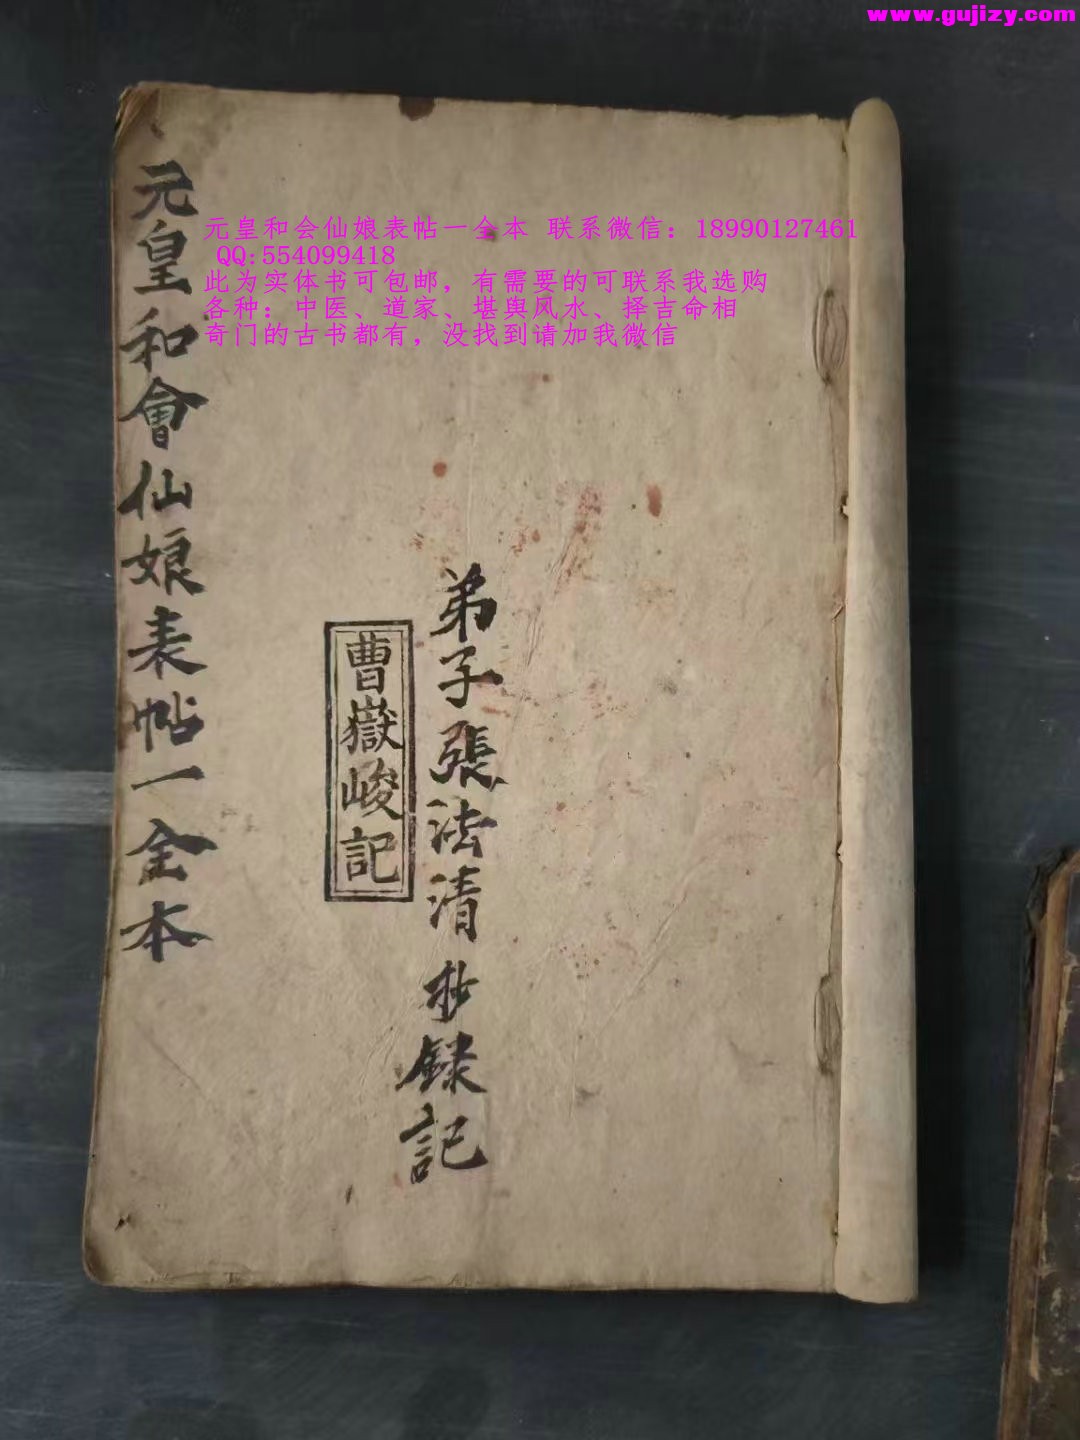 www.gujizy.com
元皇和会仙娘表帖一全本 联系微信：18990127461
QQ:554099418
此为实体书可包邮，有需要的可联系我选购
各种：中医、道家、堪舆风水、择吉命相
奇门的古书都有，没找到请加我微信
元皇和會仙娘表帖一全本
弟子張法清抄録記
曹嶽峻記